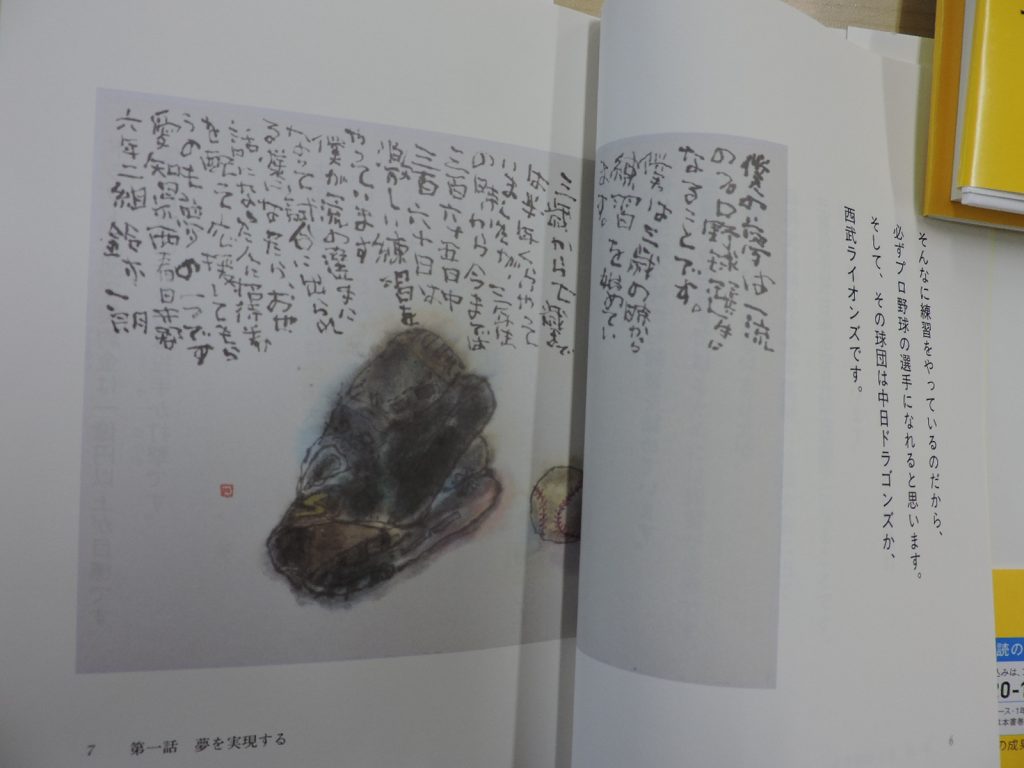 そんなに練習をやっているのだから、
必ずプロ野球の選手になれると思います。
そして、その球団は中日ドラゴンズか、
西武ライオンズです。
僕の夢は一流
のプロ野球選手に
なることです。
僕は三歳の時から
練習を始めてい
ます。
三歳から七歳まで
は半年くらいやって
いましたが、三年生
の時から今までは
三百六十五日中
三百六十日は
激しい練習を
やっています
僕が一流の選手に
なって試合に出られ
る様になったら、お世
話になった人に招待券
を配って応援してもら
うのも夢の一つです
愛知県西春日井郡
六年二組 鈴木一朗
6
7 第一話 夢を実現する
読の